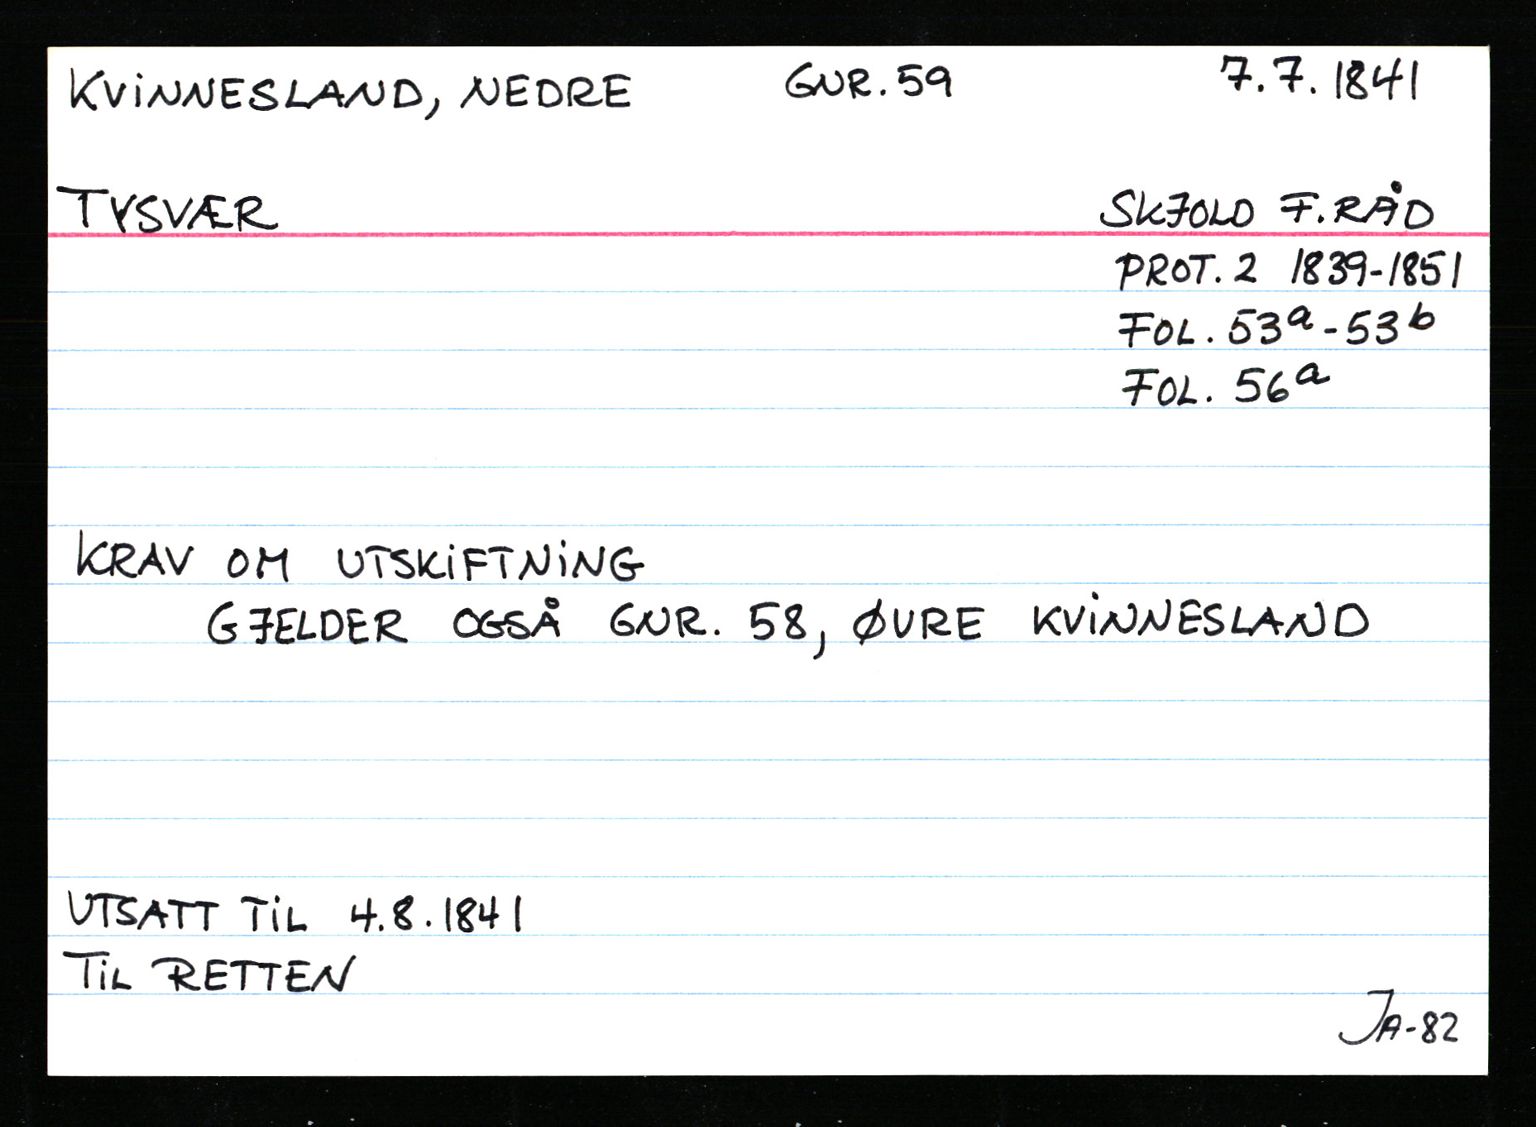 KVINNESLAND, NEDRE GNR. 59 7.7.1841
TYSVÆR SKJOLD F.RÅD
PROT. 2 1839-1851
FOL. 53a-53b
FOL. 56a
KRAV OM UTSKIFTNING
GJELDER OGSÅ GNR. 58, ØVRE KVINNESLAND
UTSATT TIL 4.8.1841
TIL RETTEN
JA-82